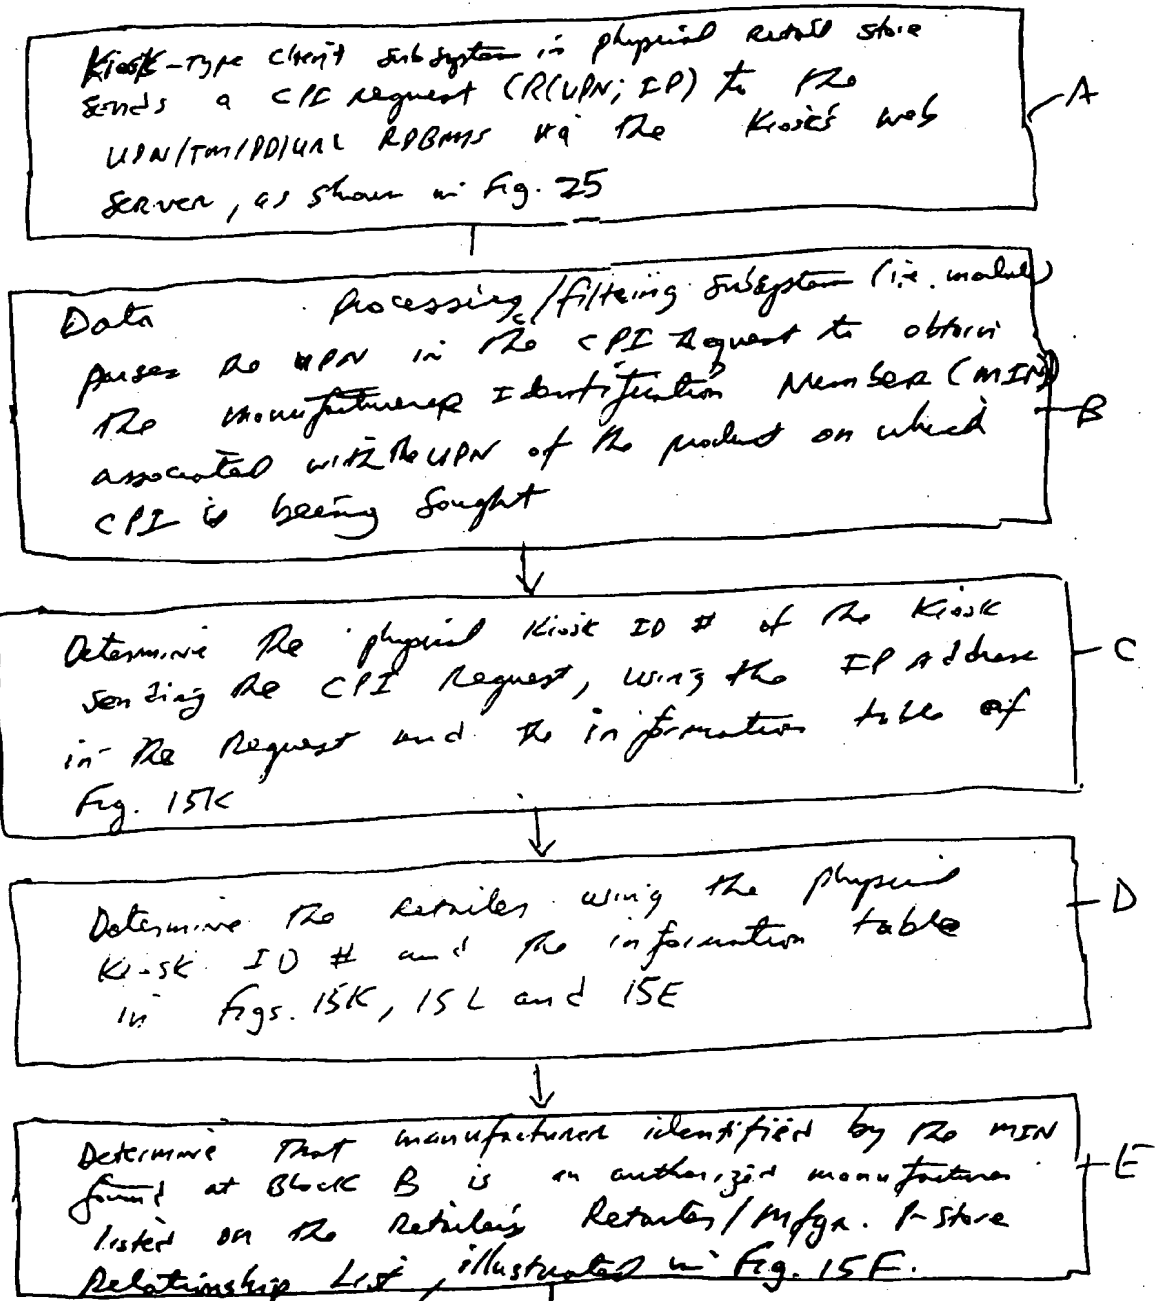 Kiosk-Type Client Subsystem in physical retail store
sends a CPI request (R(UPN; IP) to the
UPN/TM/PD/URL RDBMS via the Kiosk's web
server, as shown in Fig. 25
A
Data Processing/filtering subsystem (i.e. module)
parses the UPN in the CPI Request to obtain
the manufacturer Identification Number (MIN)
associated with the UPN of the product on which
CPI is being sought
B
Determine the physical Kiosk ID # of the Kiosk
sending the CPI Request, using the IP Address
in the Request and the information table of
Fig. 15K
C
Determine the Retailer using the physical
Kiosk ID # and the information table
in Figs. 15K, 15L and 15E
D
Determine That manufacturer identified by the MIN
found at Block B is an authorized manufacturer
listed on the Retailer's Retailer/Mfgr. P-Store
Relationship List, illustrated in Fig. 15F.
E